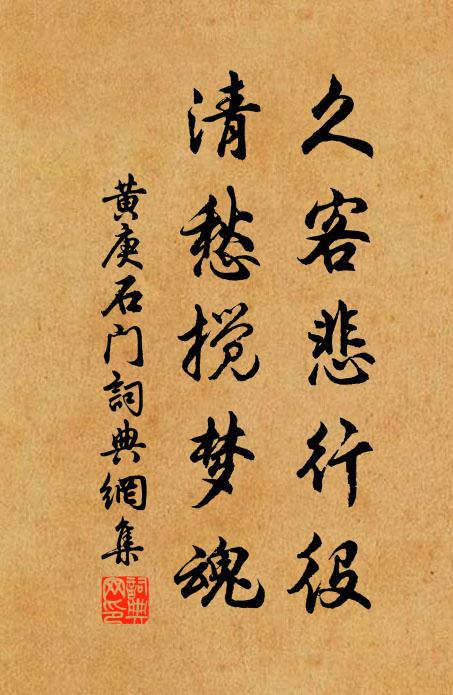 久客悲行役
清愁搅梦魂
黄庚石门詞典網集
詞典網印